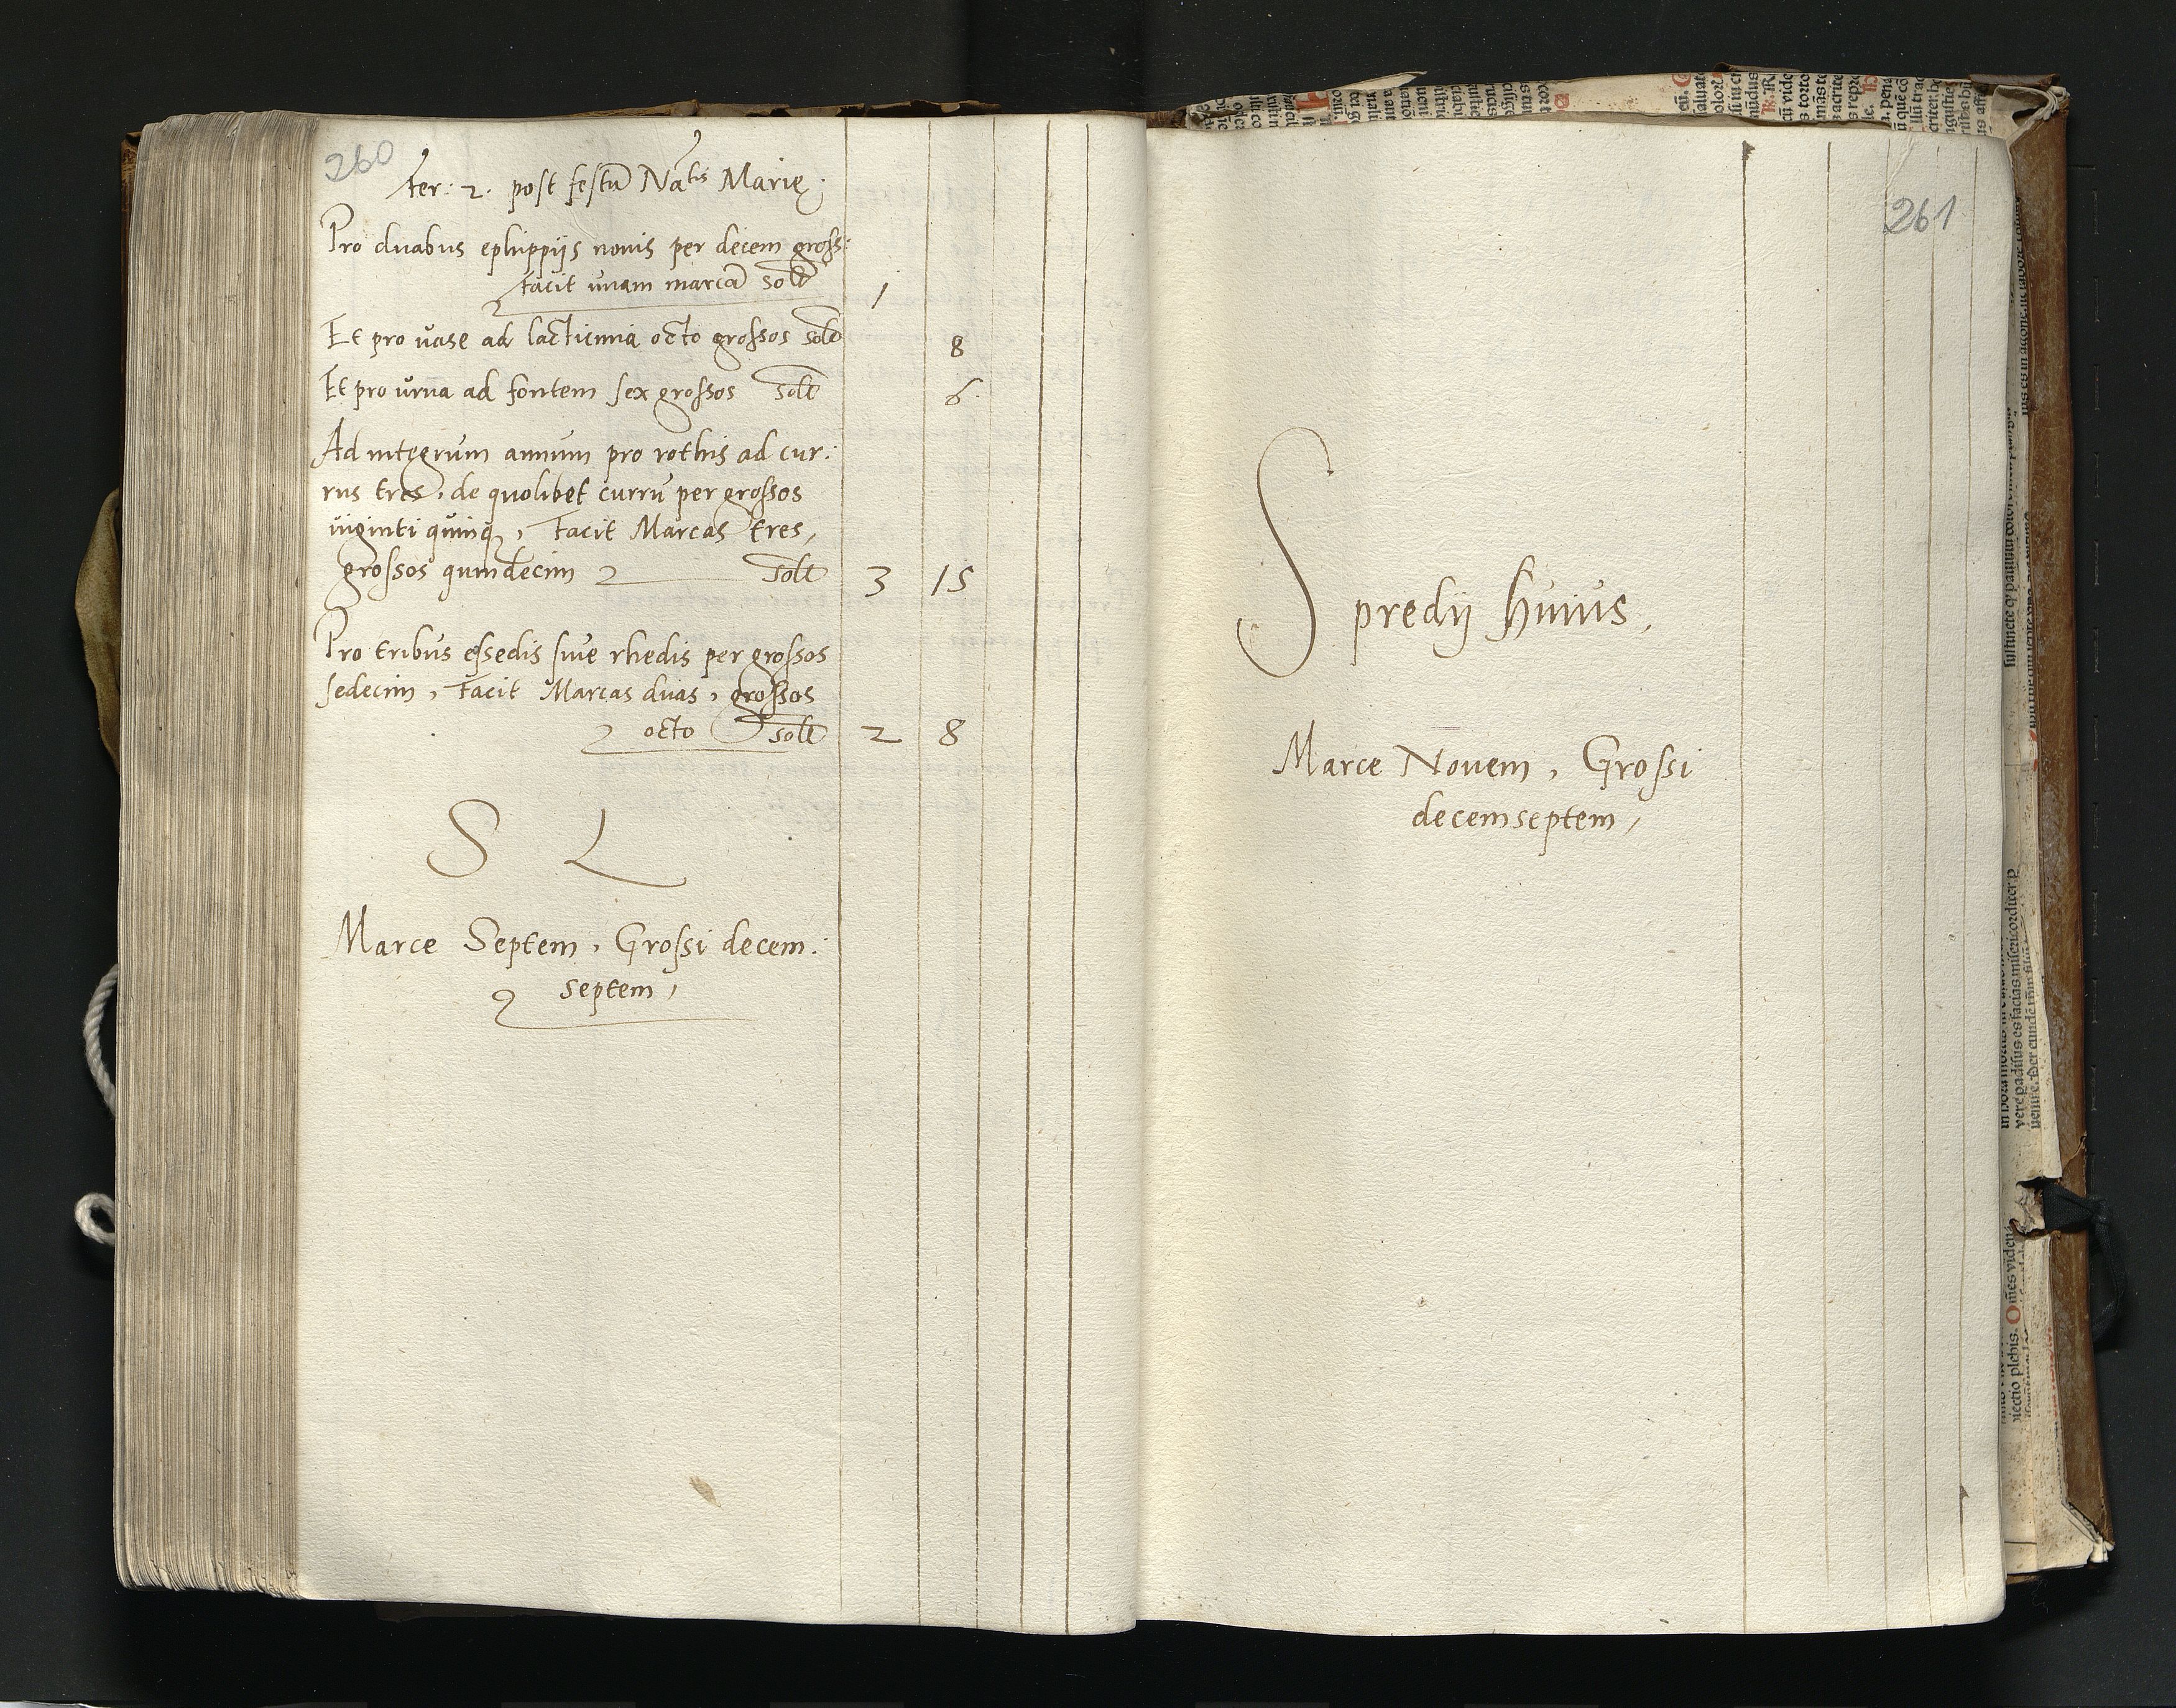 260
fer: 2. post festū Natis Marię:
Pro duabus ephippijs nouis per decem gross:
facit vnam marcā solt
1
Et pro vase ad lacticinia octo grossos solt
8
Et pro vrna ad fontem sex grossos solt
6
Ad integrum annum pro rothis ad cur:
rus tres, de quolibet curru per grossos
viginti quinq, facit Marcas tres,
grossos quindecim solt
3 15
Pro tribus essedis siue rhedis per grossos
sedecim, facit Marcas duas, grossos
octo solt
2 8
S L
Marce Septem, Grossi decem:
septem,
261
S predij huius,
Marce Nouem, Grossi
decemseptem,